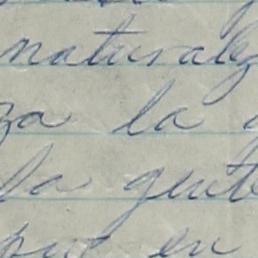 naturale
za la
la gente
que en